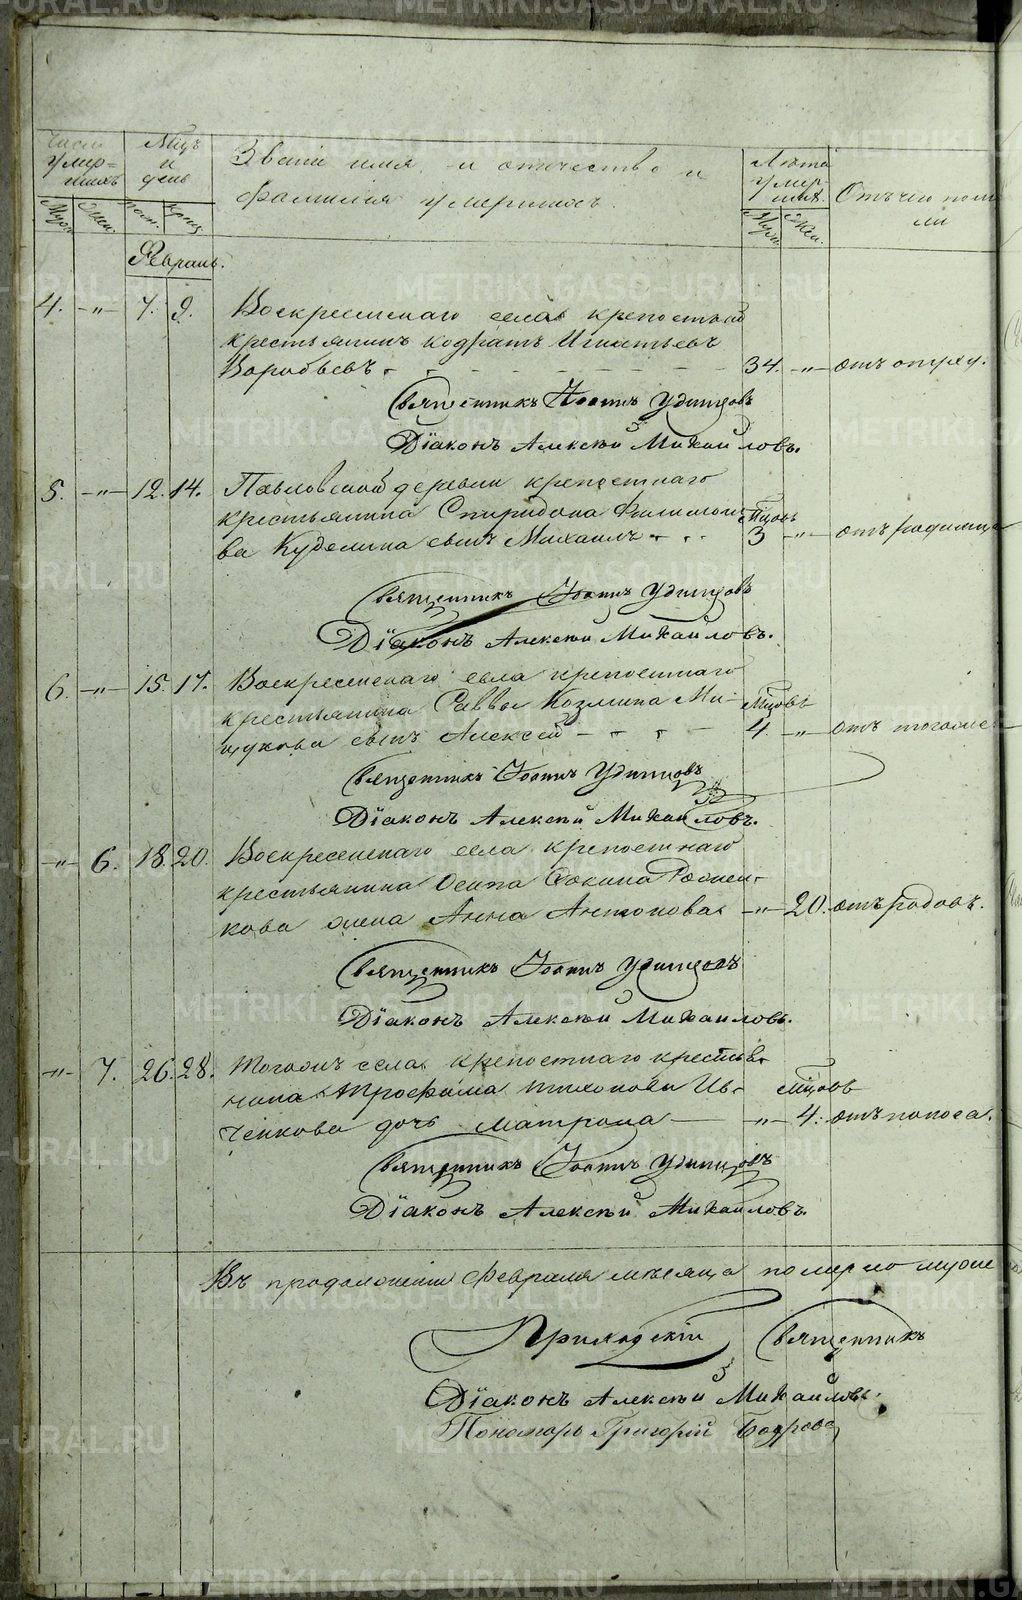 Число умер-
шихъ
Мѣц.
и
день
Званіе имя, и отчество и
фамилія умершихъ.
Лѣта
умер-
шихъ
Отъ чего поме
ли
Муж. Жен.
Февраль.
4. -"- 7. 9. Воскресенскаго села крепостной
крестьянинъ Кодратъ Игнатьевъ
Воробьевъ 34. -"- отъ
Священникъ Іоаннъ Удинцовъ
Діаконъ Алексѣй Михайловъ.
5. -"- 12. 14. Павловской деревни крепостнаго
крестьянина Спиридона Филимоно-
ва Куделина сынъ Михаилъ Мѣцовъ 3 -"- отъ родимца
Священникъ Іоаннъ Удинцовъ
Діаконъ Алексѣй Михайловъ.
6. -"- 15. 17. Воскресенскаго села крепостнаго
крестьянина Саввы Козмина Ми-
щукова сынъ Алексѣй Мѣцовъ 4 -"- отъ тогоже
Священникъ Іоаннъ Удинцовъ
Діаконъ Алексѣй Михайловъ.
-"- 6. 18. 20. Воскресенскаго села крепостнаго
крестьянина Осипа
кова жена Анна Антонова -"- 20. отъ родовъ.
Священникъ Іоаннъ Удинцовъ
Діаконъ Алексѣй Михайловъ.
-"- 7. 26. 28. Тогожъ села крепостнаго крестья-
нина Трофима Тихонова Ив-
ченкова дочь Матрона Мѣцовъ -"- 4. отъ поноса.
Священникъ Іоаннъ Удинцовъ
Діаконъ Алексѣй Михайловъ.
Въ продолженіи Февраля мѣсяца померло муже
Приходскій Священникъ
Діаконъ Алексѣй Михайловъ.
Пономарь Григорій
METRIKI.GASO-URAL.RU